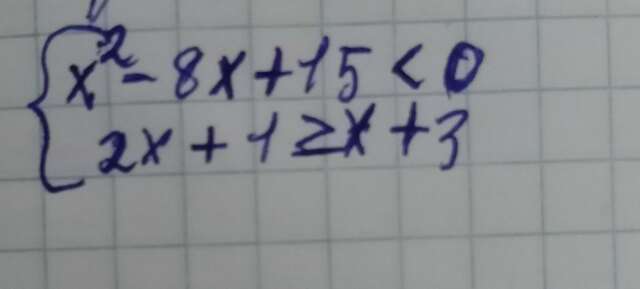 x² - 8x + 15 < 0
2x + 1 ≥ x + 3